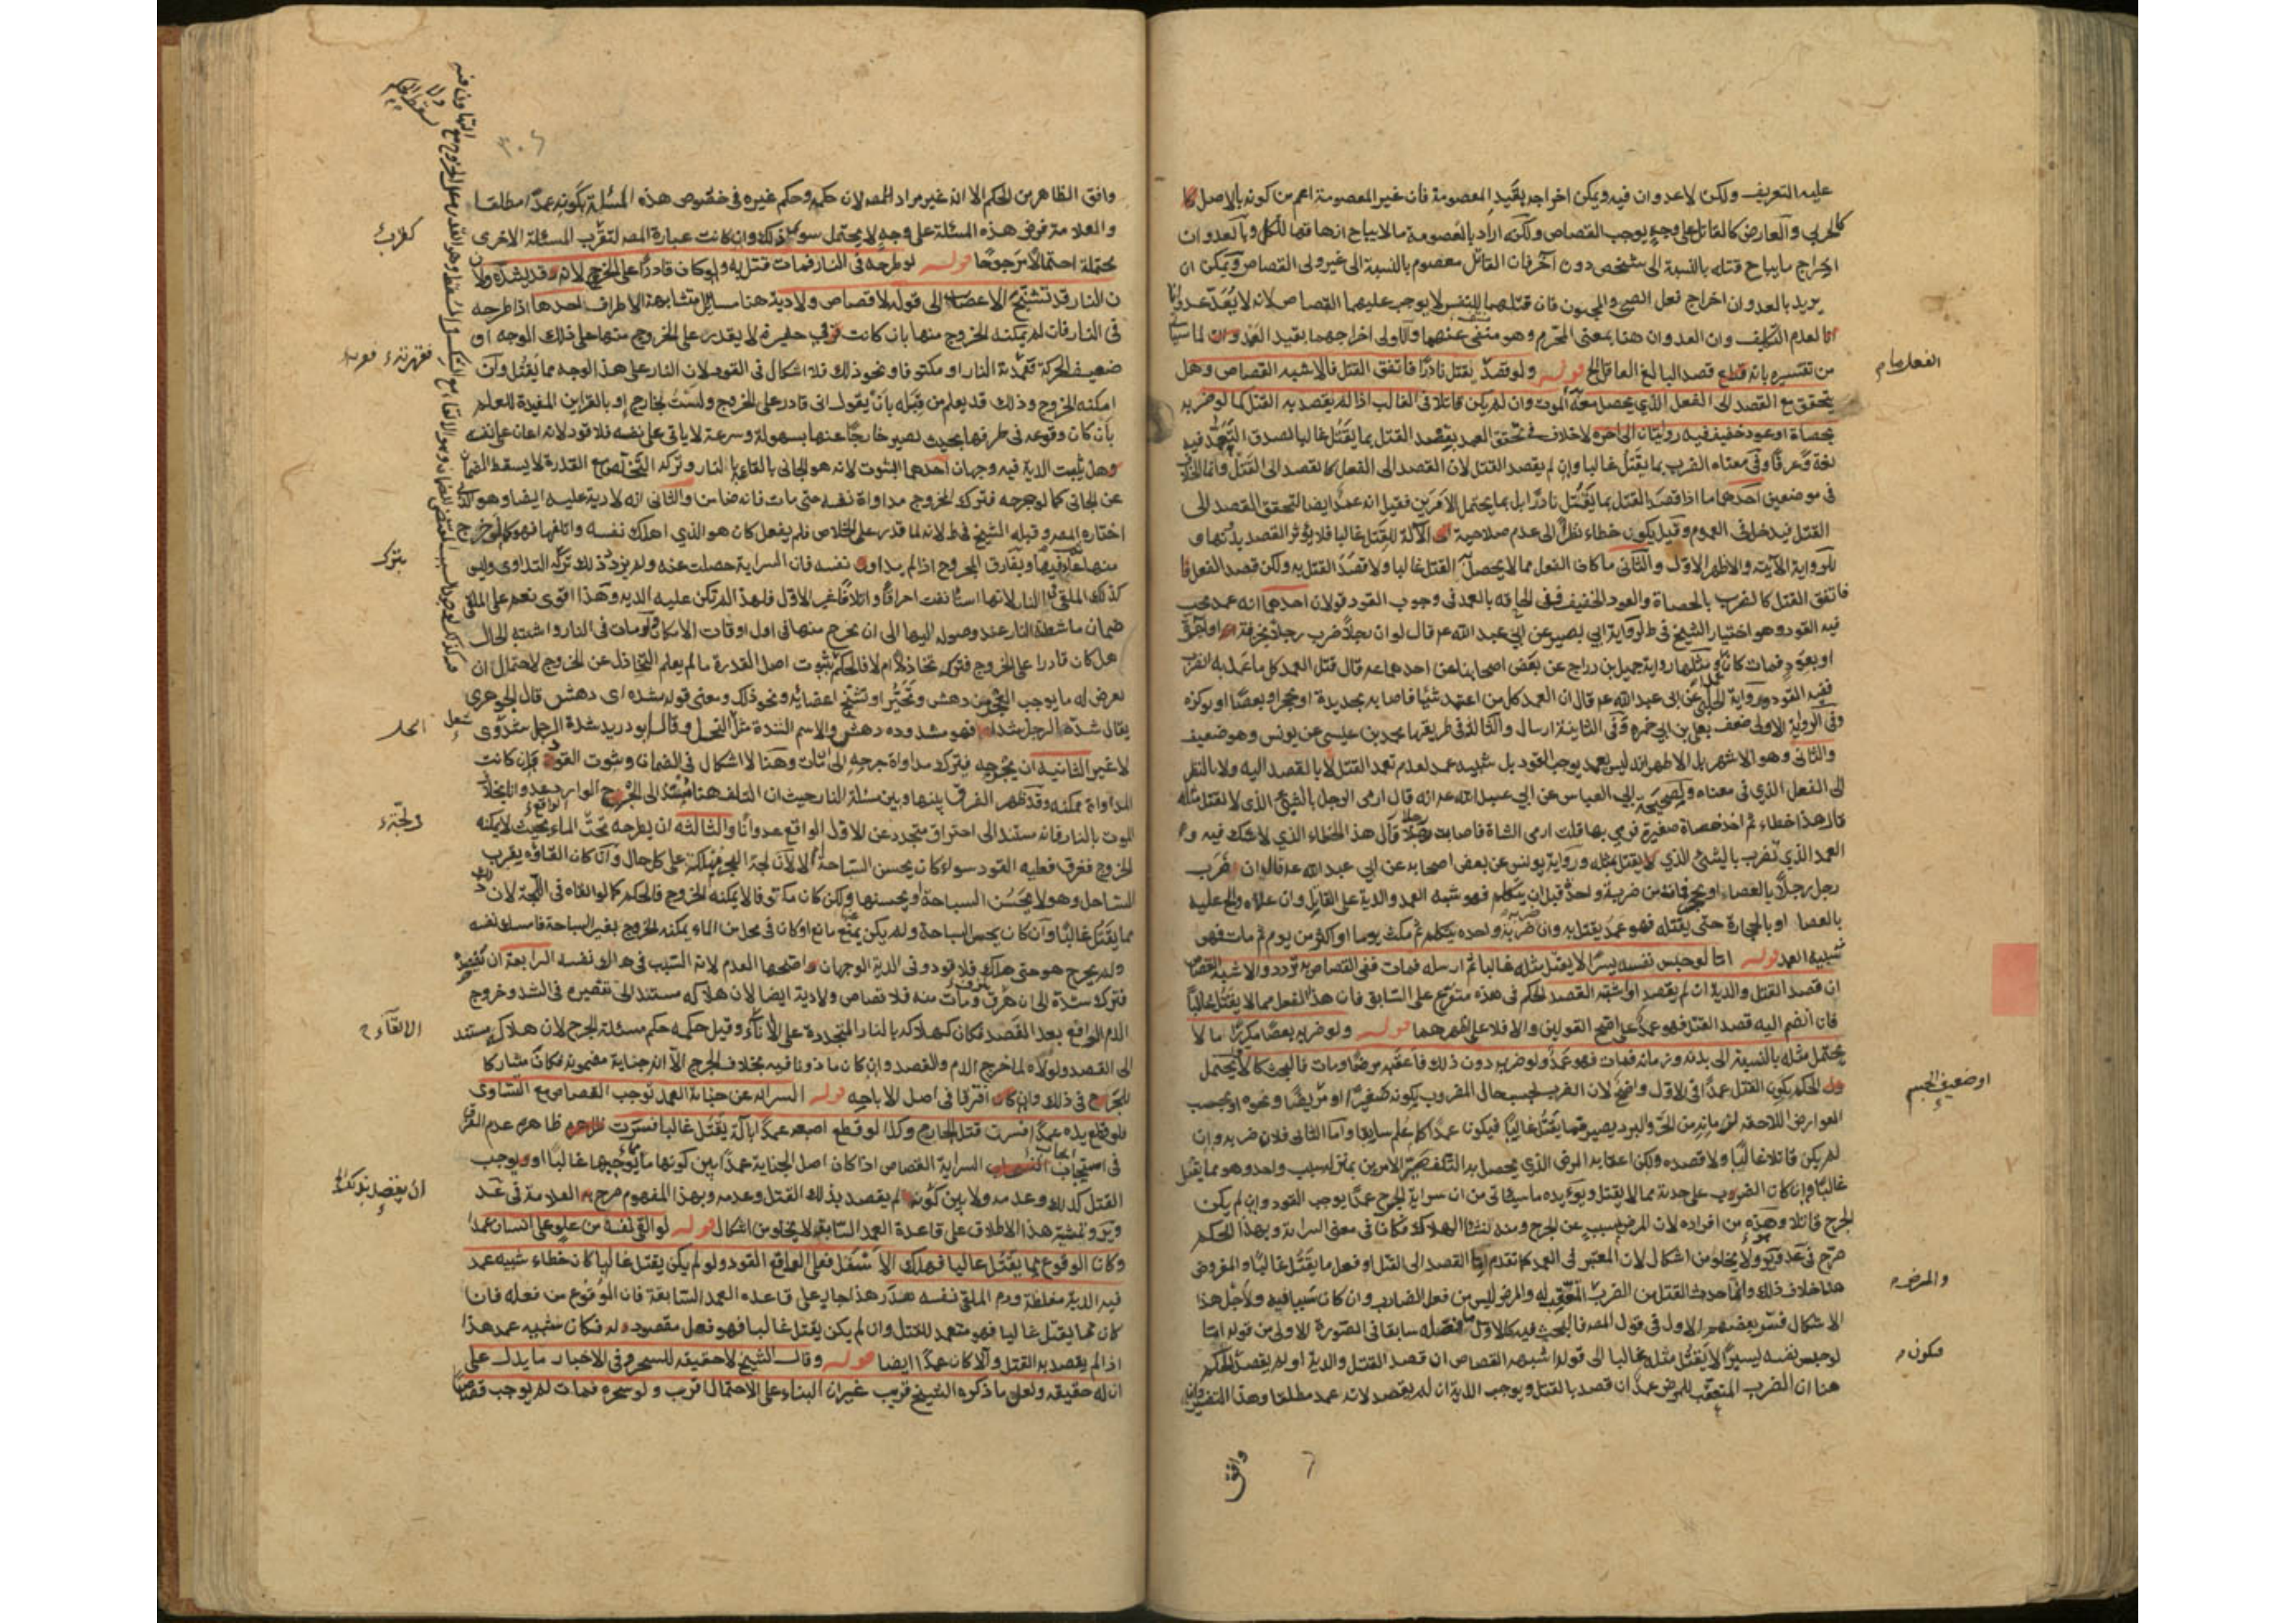 عليه التعريف ولكن لا عدوان فيه ويمكن اخراجه بقيد المعصومة فان غير المعصومة اعم من كونه بالاصل
كالحربي والعارض كالقاتل على وجه يوجب القصاص ولكنه اراد بالمعصومة ما لا يباح ازهاقها للكل وبالعدوان
اخراج ما يباح قتله بالنسبة الى شخص دون آخر فان القاتل معصوم بالنسبة الى غير ولى القصاص ويمكن ان
يريد بالعدوان اخراج فعل الصبي والمجنون فان قتلهما للنفس لا يوجب عليهما القصاص لانه لا يعد عدوانا
اما لعدم التكليف وان العدوان هنا بمعنى المحرم وهو منفى عنهما والاولى اخراجهما بقيد العمد لما سياتى
من تفسيره بانه قصد البالغ العاقل الخ قوله ولو قصد بقتل نادرا فاتفق القتل فالاشبه القصاص وهل
يتحقق مع القصد الى الفعل الذي يحصل معه الموت وان لم يكن قاتلا فى الغالب اذا لم يقصد به القتل كما لو ضربه
بحصاة او عود خفيف فيه روايتان الى آخره لا خلاف فى تحقق العمد بقصد القتل بما يقتل غالبا لصدق التعمد فيه
لغة وعرفا وفى معناه الضرب بما يقتل غالبا وان لم يقصد القتل لان القصد الى الفعل كالقصد الى القتل وانما الخلاف
فى موضعين احدهما ما اذا قصد القتل بما يقتل نادرا بل بما يحتمل الامرين فقيل انه عمد ايضا لتحقق القصد الى
القتل فيدخل فى العموم وقيل يكون خطاء نظرا الى عدم صلاحية الآلة للقتل غالبا فلا يؤثر القصد بدونها و
للرواية الآتية والاظهر الاول والثانى ما كان الفعل مما لا يحصل به القتل غالبا ولا قصد القتل به ولكن قصد الفعل
فاتفق القتل كالضرب بالحصاة والعود الخفيف ففى الحاقه بالعمد فى وجوب القود قولان احدهما انه عمد يجب
فيه القود وهو اختيار الشيخ فى ط لرواية ابي بصير عن ابي عبد الله عم قال لو ان رجلا ضرب رجلا بخزفة او آجرة
او بعود فمات كان عمدا ومثلها رواية جميل بن دراج عن بعض اصحابنا عن احدهما عم قال قتل العمد كل ما عمد به الضرب
ففيه القود ورواية الحلبي عن ابى عبد الله عم قال ان العمد كل من اعتمد شيئا فاصابه بحديدة او بحجر او بعصا او بوكزة
وفى الرواية الاولى ضعف بعلى بن ابي حمزه وفى الثانية ارسال والثالثة فى طريقها محمد بن عيسى عن يونس وهو ضعيف
والثانى وهو الاشهر بل الاظهر انه ليس بعمد يوجب القود بل شبيه عمد لعدم تعمد القتل لا بالقصد اليه ولا بالنظر
الى الفعل الذي فى معناه ولصحيحة ابي العباس عن ابي عبد الله عم انه قال ارمى الرجل بالشيئ الذى لا يقتل مثله
قال هذا خطاء ثم اخذ حصاة صغيرة فرمى بها قلت ارمى الشاة فاصابت رجلا قال هذا الخطاء الذي لا شك فيه و
العمد الذي يضرب بالشيئ الذي يقتل بمثله ورواية يونس عن بعض اصحابه عن ابي عبد الله عم قال ان ضرب
رجل رجلا بالعصا او بحجر فمات من ضربة واحدة قبل ان يتكلم فهو شبه العمد والدية على القاتل وان علاه والح عليه
بالعصا او بالحجارة حتى يقتله فهو عمد يقتل به وان ضربه ضربة واحده فتكلم ثم مكث يوما او اكثر من يوم ثم مات فهو
شبيه العمد قوله اما لو حبس نفسه يسيرا لا يقتل مثله غالبا ثم ارسله فمات ففى القصاص تردد والاشبه القصاص
ان قصد القتل والدية ان لم يقصد او اشتبه القصد الحكم فى هذه متفرع على السابق فان هذا الفعل مما لا يقتل غالبا
فان انضم اليه قصد القتل فهو عمد على اصح القولين والا فلا على اظهرهما قوله ولو ضربه بعصا مكررا ما لا
يحتمل مثله بالنسبة الى بدنه وزمانه فمات فهو عمد ولو ضربه دون ذلك فاعقبه مرضا ومات فالبحث كالاول يحتمل
الحكم بكون القتل عمدا فى الاول واضح لان الضرب بحسب حال المضروب بكونه صغيرا او مريضا ونحوه او بحسب
العوارض اللاحقة لزمانه من الحر والبرد يصير مما يقتل غالبا فيكون عمدا كما علم سابقا واما الثانى فلان ضربه وان
لم يكن قاتلا غالبا ولا قصده ولكن اعقابه المرض الذي يحصل به التلف صير الامرين بمنزلة سبب واحد وهو مما يقتل
غالبا وان كان الضرب على حدته مما لا يقتل ويؤيده ما سياتى من ان سراية الجرح عمدا يوجب القود وان لم يكن
الجرح قاتلا وهذه من افراده لان المرض مسبب عن الجرح ومنه نشأ الهلاك فكانا فى معنى السراية وبهذا الحكم
صرح فى عد ور ولا يخلو من اشكال لان المعتبر فى العمد كما تقدم اما القصد الى القتل او فعل ما يقتل غالبا والمفروض
هنا خلاف ذلك وانما حدث القتل من الضرب المعقب له والمرض ليس من فعل الضارب وان كان سببا فيه ولاجل هذا
الاشكال فسر بعضهم الاول فى قول المصنف فالبحث فيه كالاول بما فصله سابقا فى الصورة الاولى من قوله اما
لو حبس نفسه يسيرا لا يقتل مثله غالبا الى قوله اشبهه القصاص ان قصد القتل والدية او لم يقصد فالحكم
هنا ان الضرب المتعقب للمرض عمد ان قصد بالقتل ويوجب الدية ان لم يقصد لانه عمد مطلقا وهذا التفسير وان
الفعل
او ضعيف الجسم
والمرض
فكون
وافق
وافق الظاهر من الحكم الا انه غير مراد للمصنف لان حكمه وحكم غيره فى خصوص هذه المسئلة بكونه عمدا مطلقا
والعلامة فرض هذه المسئلة على وجه لا يحتمل سوى ذلك وان كانت عبارة المصنف لتقرب المسئلة الاخرى
محتملة احتمالا مرجوحا قوله لو طرحه فى النار فمات قتل به ولو كان قادرا على الخروج لانه قد يشده ولان
النار قد تشنج الاعصاب الى قوله لا قصاص ولا دية هنا مسائل متشابهة الاطراف احدها اذا طرحه
فى النار فان لم يمكنه الخروج منها بان كانت فى حفيرة لا يقدر على الخروج منها على ذلك الوجه او
ضعيف الحركة او مكتوفا ونحو ذلك فلا اشكال فى القود لان النار على هذا الوجه مما يقتل وان
امكنه الخروج وذلك قد يعلم من قبله بأن يقول انى قادر على الخروج ولست بخارج او بالقراين المفيدة للعلم
بان كان وقوعه فى طرفها بحيث يصير خارجا عنها بسهولة وسرعة لا ياتى على نفسه فلا قود لانه اعان على نفسه
وهل يثبت الدية فيه وجهان احدهما الثبوت لانه هو الجانى بالقاءه بالنار وترك التخلص مع القدرة لا يسقط الضمان
عن الجانى كما لو جرحه فترك المجروح مداواة نفسه حتى مات فانه ضامن والثانى انه لا دية عليه ايضا وهو الذى
اختاره المصنف وقبله الشيخ فى ط لانه لما قدر على الخلاص فلم يفعل كان هو الذي اهلك نفسه واتلفها فهو كما لو خرج
منها ثم عاد فيها ويفارق المجروح اذا لم يداو نفسه فان السراية حصلت عنه ولم يزد ذلك ترك التداوى وليس
كذلك الملقى فى النار لانها استأنفت احراقا واتلافا غير الاول فلهذا لم تكن عليه الديه وهذا اقوى نعم على الملقى
ضمان ما شيطته النار عند وصوله اليها الى ان يخرج منها فى اول اوقات الامكان ولو مات فى النار واشتبه الحال
هل كان قادرا على الخروج فتركه تخاذلا ام لا فالحكم بثبوت اصل القدرة ما لم يعلم التخاذل عن الخروج لاحتمال ان
يعرض له ما يوجب العجز من دهش وتحير او تشنج اعضائه ونحو ذلك ومعنى قوله يشده اى دهش قال الجوهرى
يقال شده الرجل شدها فهو مشدوه دهش والاسم الشدة مثل البخل وقال ابو دريد شده الرجل
لا غير الثانية ان يجرحه فيترك مداواة جرحه الى ان مات وهنا لا اشكال فى الضمان وثبوت القود وان كانت
المداواة ممكنة وقد ظهر الفرق بينها وبين مسئلة النار حيث ان التلف هنا مستند الى الجرح الوارد عدوانا بخلاف
الموت بالنار فانه مستند الى احتراق متجدد عن الاول الواقع عدوانا والثالثه ان يطرحه تحت الماء بحيث لا يمكنه
الخروج فغرق فعليه القود سواء كان يحسن السباحة ام لا لان لجة البحر مهلكة على كل حال وان كان القاؤه بقرب
الساحل وهو لا يحسن السباحة او يحسنها ولكن كان مكتوفا لا يمكنه الخروج فالحكم كما لو القاه فى اللجة لان ذلك
مما يقتل غالبا وان كان يحسن السباحة ولم يكن يمنع مانع او كان فى محل من الماء يمكنه الخروج بغير السباحة فامسك نفسه
ولم يخرج هو حتى هلك فلا قود وفى الدية الوجهان واصحهما العدم لانه السبب فى هلاك نفسه الرابعة ان يفصده
فترك شده الى ان نزف ومات منه فلا قصاص ولا دية ايضا لان هلاكه مستند الى تقصيره فى الشد وخروج
الدم الواقع بعد الفصد فكان كهلاكه بالنار المتجددة على الالقاء وقيل حكمه حكم مسئلة الجرح لان هلاكه مستند
الى الفصد ولولاه لما خرج الدم والفصد وان كان ماذونا فيه بخلاف الجرح الا انه جناية مضمونة فكان مشاركا
للجرح فى ذلك وان افترقا فى اصل الاباحه قوله السراية عن جناية العمد توجب القصاص مع التساوى
فلو قطع يده عمدا فسرت قتل الجارح وكذا لو قطع اصبعه عمدا بآلة يقتل غالبا فسرت ظاهرهم عدم الفرق
فى استيجاب السراية القصاص اذا كان اصل الجناية عمدا بين كونها مما يوجبها غالبا او يوجب
القتل كذلك وعدمه ولا بين كونه لم يقصد بذلك القتل وعدمه وبهذا المفهوم صرح العلامة فى عد
وير وتمشية هذا الاطلاق على قاعدة العمد السابقة لا يخلو من اشكال قوله لو القى نفسه من علو على انسان عمدا
وكان الوقوع مما يقتل غالبا فهلك الاسفل فعلى الواقع القود ولو لم يكن يقتل غالبا كان خطاء شبيه عمد
فيه الدية مغلظة ودم الملقى نفسه هدر هذا جار على قاعده العمد السابقة فان الوقوع من فعله فان
كان مما يقتل غالبا فهو متعمد للقتل وان لم يكن يقتل غالبا فهو فعل مقصود له فكان شبيه عمد هذا
اذا لم يقصد به القتل والا كان عمدا ايضا قوله وقال الشيخ لا حقيقه للسحر وفى الاخبار ما يدل على
ان له حقيقه ولعل ما ذكره الشيخ قريب غير ان البناء على الاحتمال اقرب ولو سحره فمات لم يوجب قصاصا
بترك
الالقاء